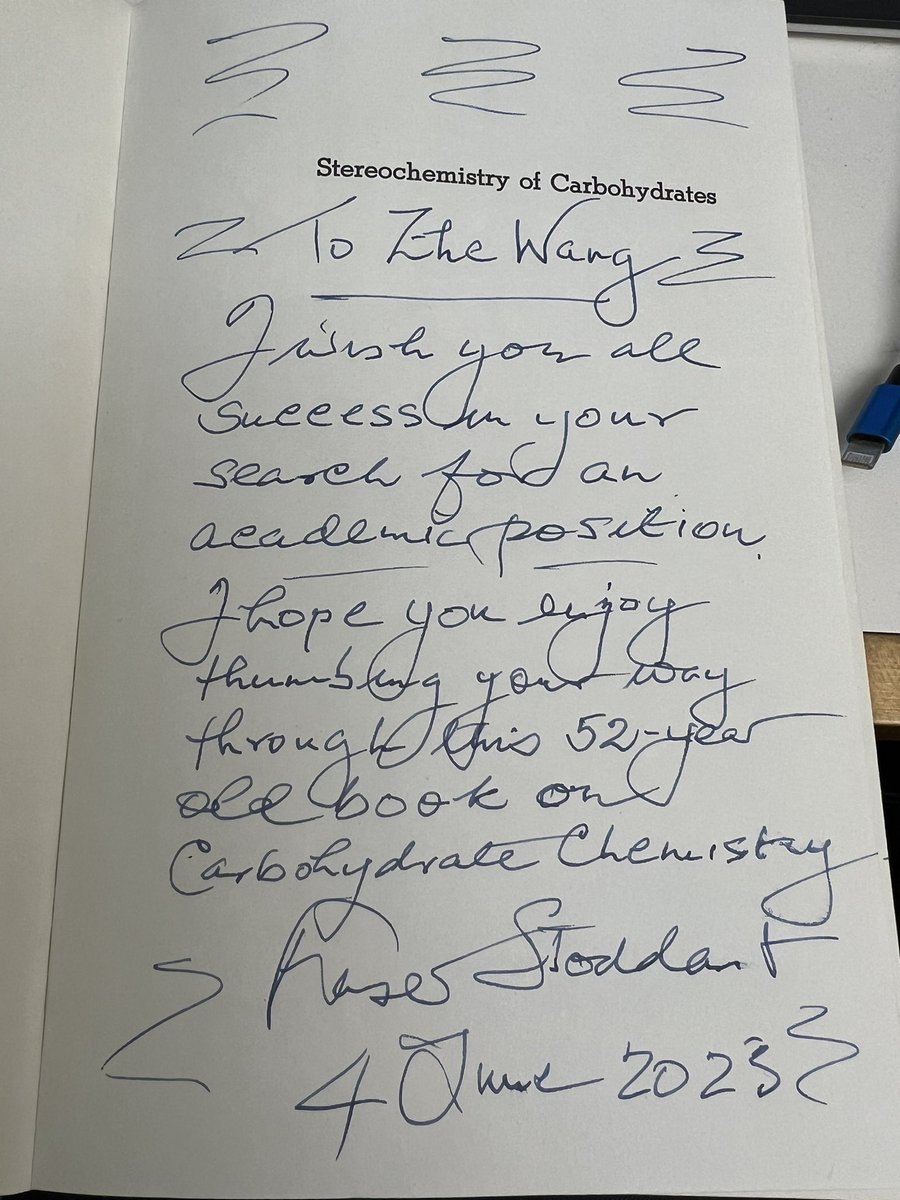 Stereochemistry of Carbohydrates
To Zhe Wang
I wish you all
success in your
search for an
academic position.
I hope you enjoy
thumbing your way
through this 52-year
old book on
Carbohydrate Chemistry
Fraser Stoddart
4 June 2023